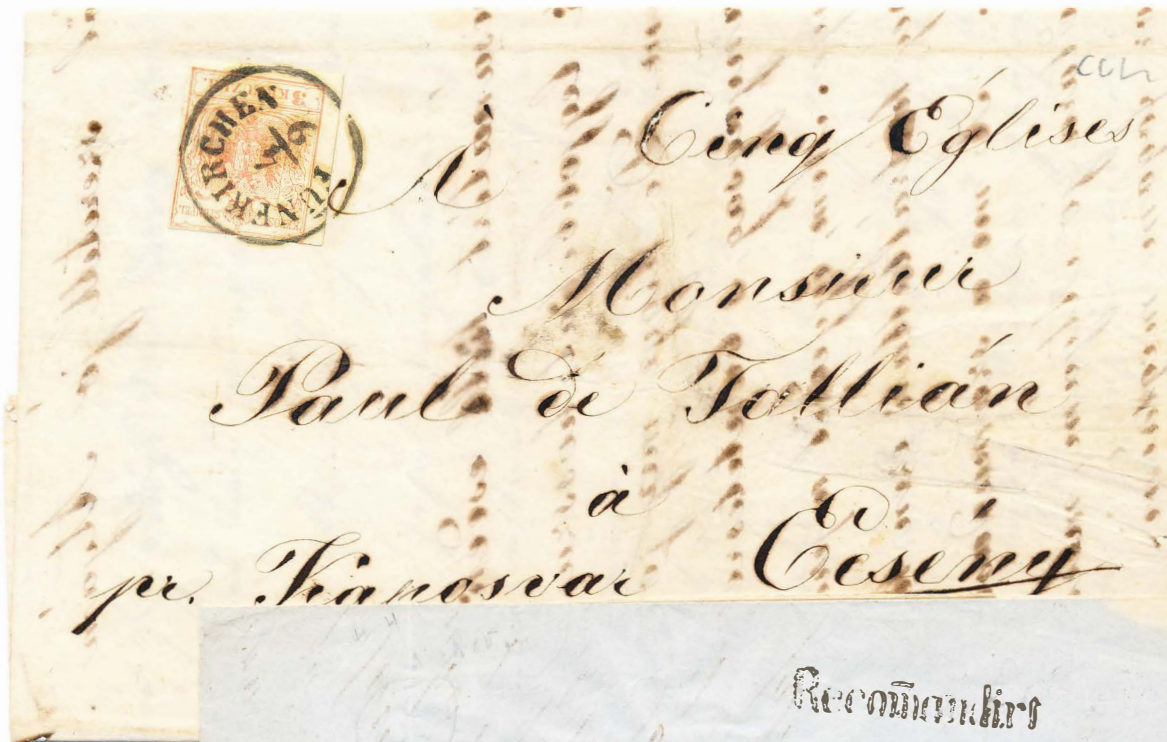 3 K
FÜNFKIRCHEN
9/5
A Cinq Eglises
Monsieur
Paul de Tallián
à
pr. Kaposvar Ecseny
Recom̄andirt